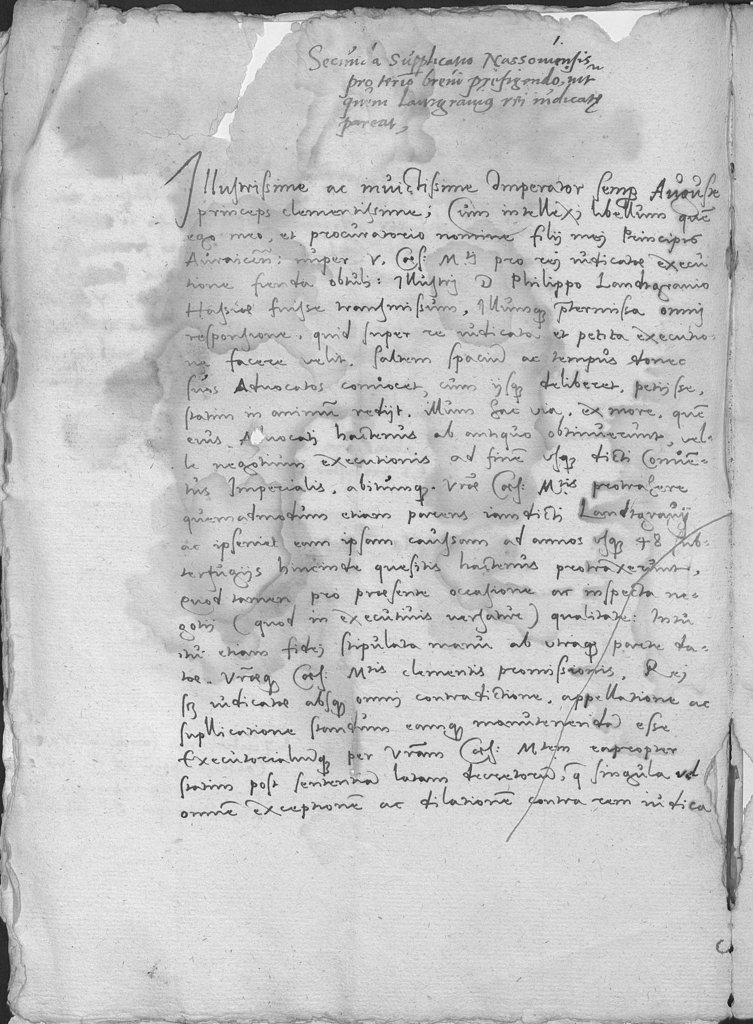 Secunda Supplicatio Nassoviensis
pro termino brevi prefigendo, ut
quem Lantgravius rei iudicatę
pareat,
Illustrissime ac invictissime Imperator semp Auguste
princeps clementissime, Cum intellexi libellum quē
ego meo, et procuratorio nomine filij mei Principis
nuper v. Caes: Mti pro rei iudicatae execu
tione fienda obtuli: Illustri D Philippo Landtgravio
Hassiae fuisse transmissum, Illumq ptermissa omni
responsione, quid super re iudicata et petita executio-
ne facere velit. saltem spaciū ac tempus donec
suos Advocatos convocet, cum ijsq deliberet, petijsse,
statim in animū redijt. illum hac via, ex more, quē
eius Advocati hactenus ab antiquo obtinuerunt, vel-
le negotium executionis ad finē usq dicti Convē-
tus Imperialis, abitumq Vrae Caes: Mtis protrahere
quemadmodum etiam parens iamdicti Landtgravij
ac ipsemet eam ipsam caussam ad annos usq 48 sub-
terfugijs hincinde quesitis hactenus protraxerunt,
quod tamen pro praesente occasione ac inspecta ne-
gotij (quod in executivis versatur) qualitate: Intu
itu etiam fidei stipulata manu ab utraq parte da-
tae. Vraeq Caes: Mtis clementis promissionis, Rei
sz iudicatae absq omni contradictione, appellatione ac
supllicatione standum eamq manutenendā esse
Executorialiumq per Vram Caes: Mtem eapropter
statim post sententiā latam decretorū, q singula vel
omnē exceptionē ac dilationē contra rem iudica